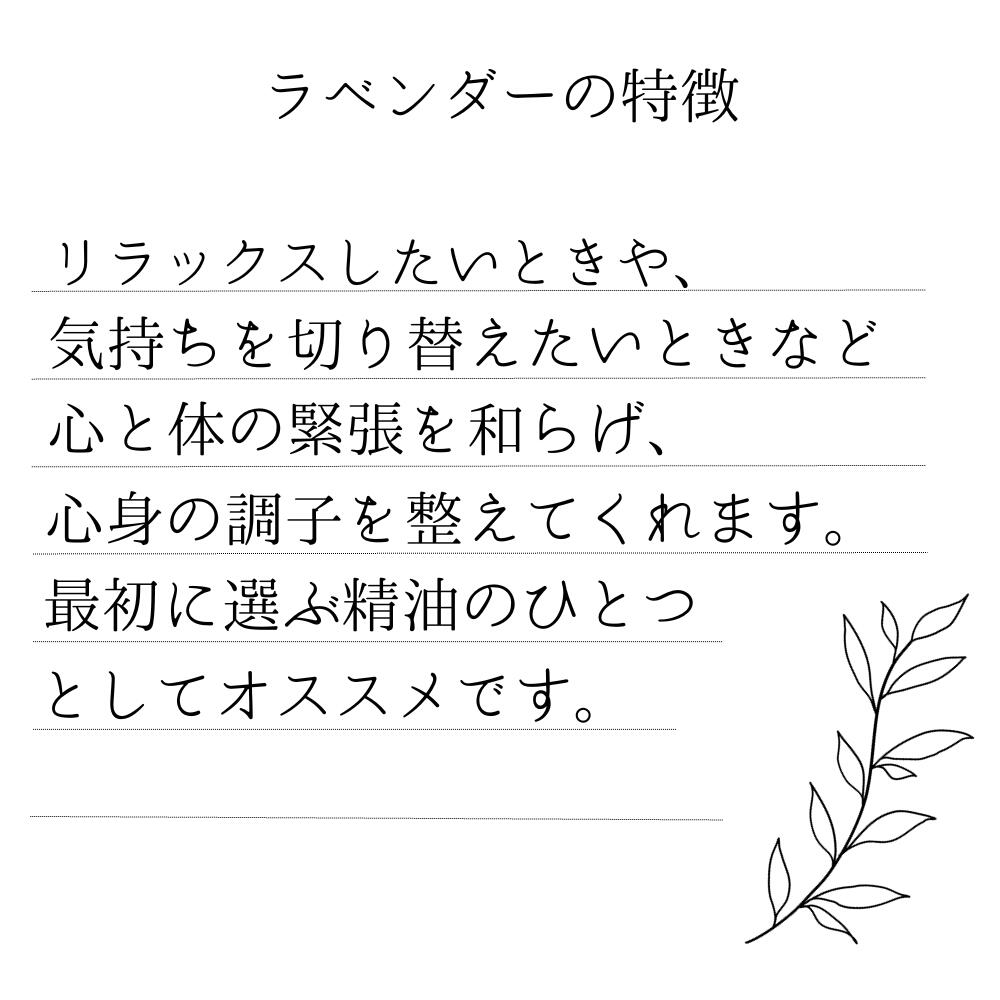 ラベンダーの特徴
リラックスしたいときや、
気持ちを切り替えたいときなど
心と体の緊張を和らげ、
心身の調子を整えてくれます。
最初に選ぶ精油のひとつ
としてオススメです。